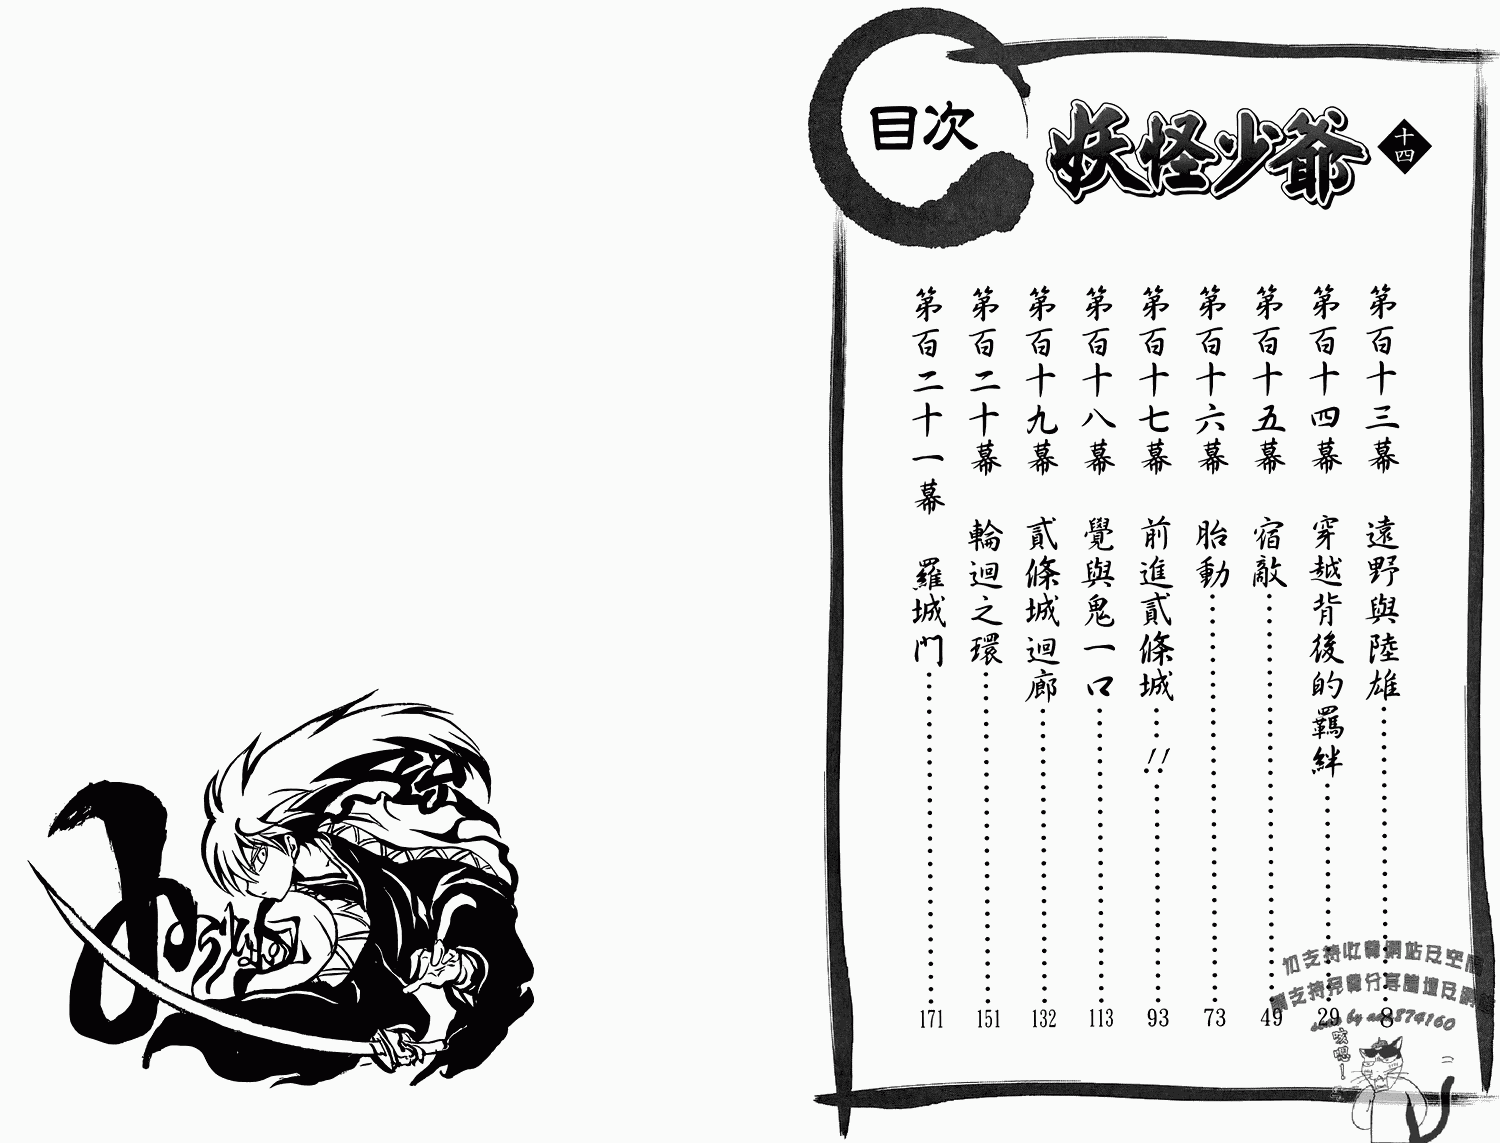 妖怪少爺
十四
目次
第百十三幕 遠野與陸雄……8
第百十四幕 穿越背後的羈絆……29
第百十五幕 宿敵……49
第百十六幕 胎動……73
第百十七幕 前進貳條城…!!……93
第百十八幕 覺與鬼一口……113
第百十九幕 貳條城迴廊……132
第百二十幕 輪迴之環……151
第百二十一幕 羅城門……171